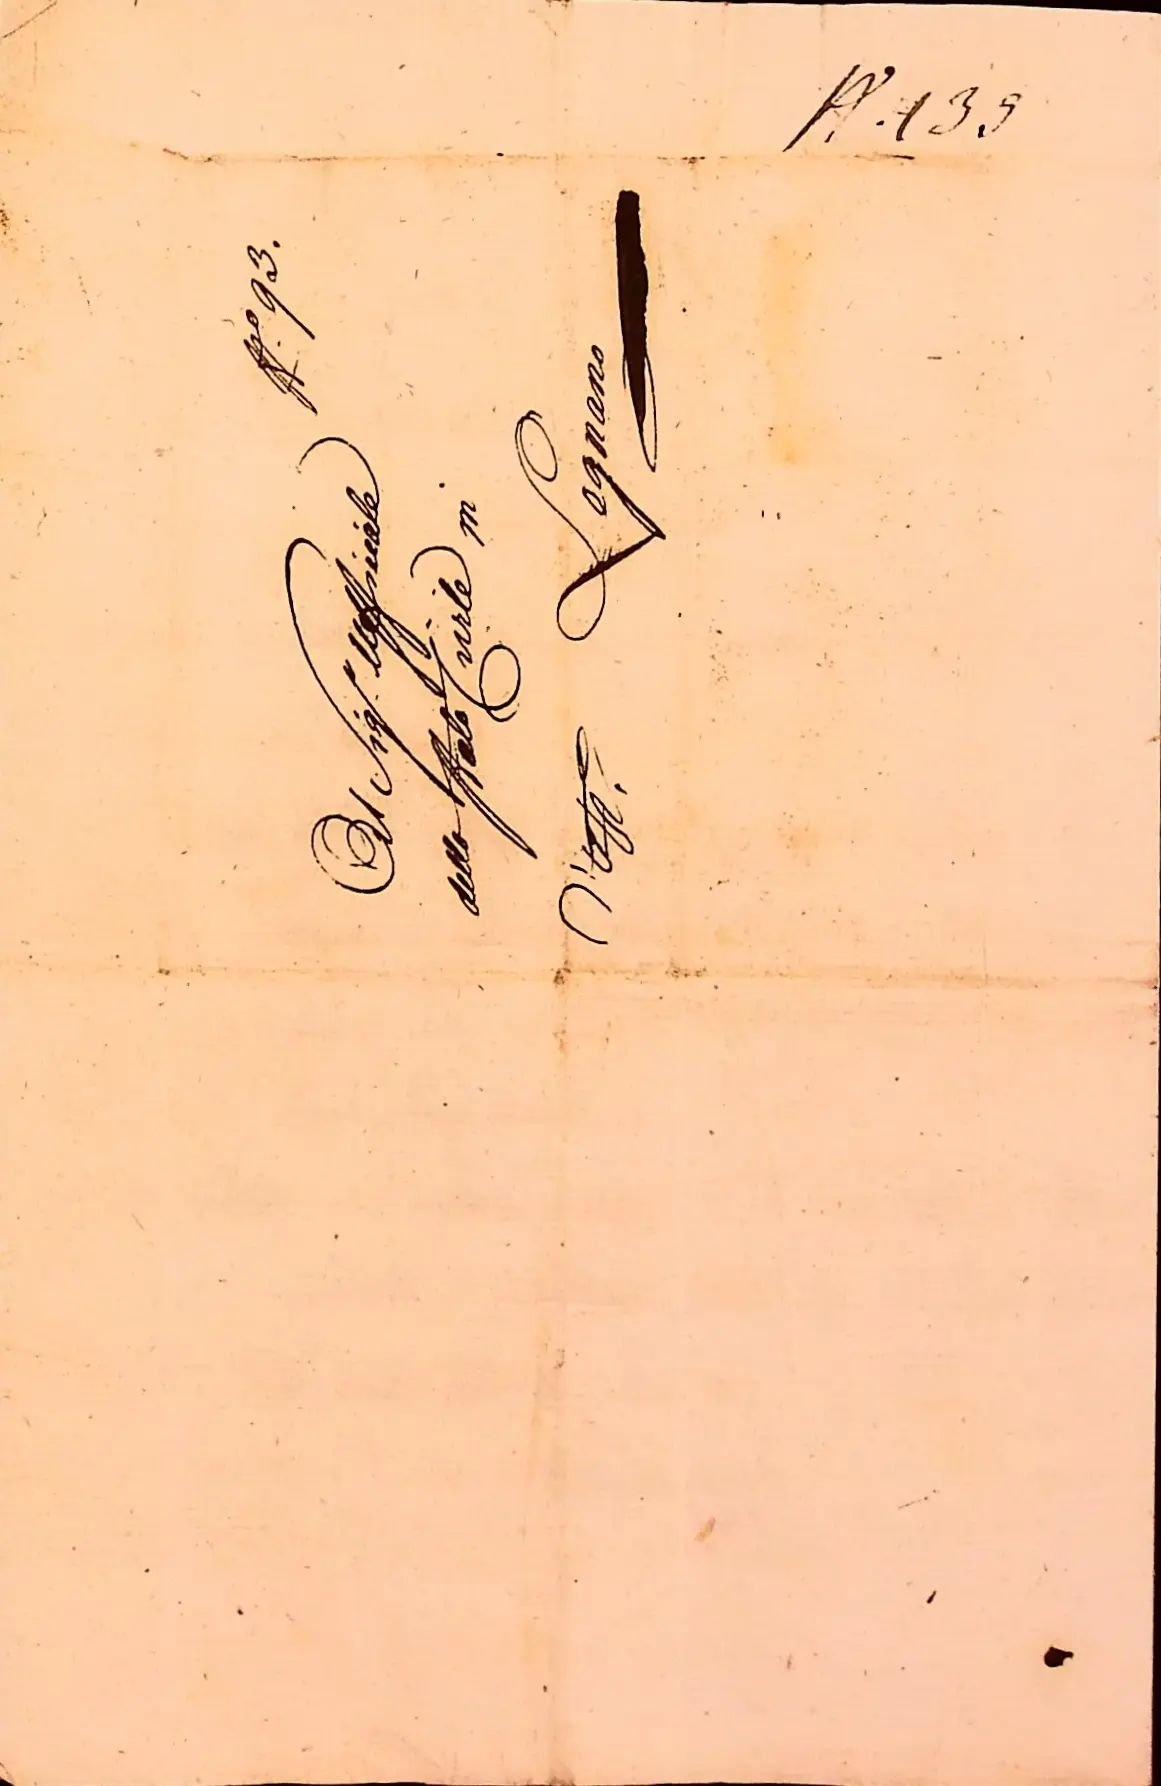 N.° 139
N.° 93.
Al Sig.r Uffiziale
dello Stato Civile in
Lognano